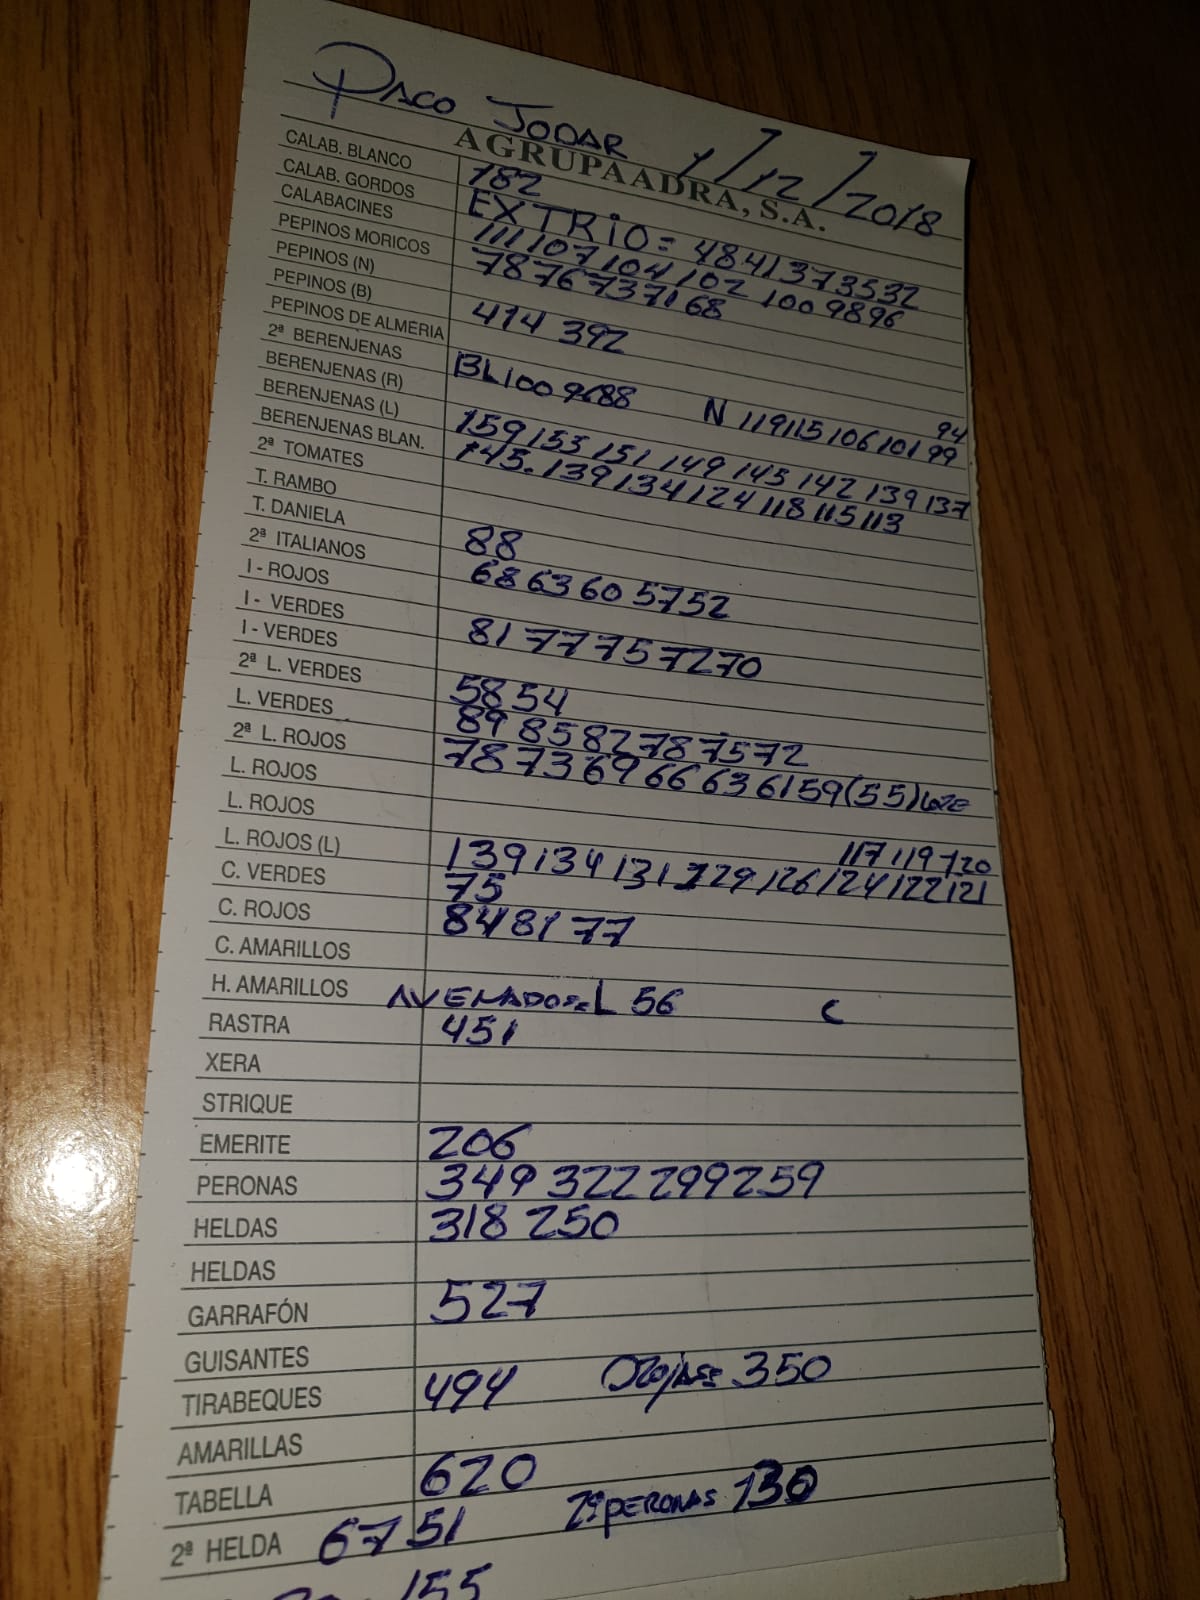 PACO JODAR 1/12/2018
AGRUPAADRA, S.A.
CALAB. BLANCO 182
CALAB. GORDOS EXTRIO= 4841373532
CALABACINES 111 107 104 102 100 98 96
PEPINOS MORICOS 78 76 73 71 68
PEPINOS (N)
PEPINOS (B) 414 392
PEPINOS DE ALMERIA 94
2ª BERENJENAS BL 100 96 88 N 119 115 106 101 99
BERENJENAS (R)
BERENJENAS (L) 159 153 151 149 145 142 139 137
BERENJENAS BLAN. 145. 139 134 124 118 115 113
2ª TOMATES
T. RAMBO
T. DANIELA 88
2ª ITALIANOS 68 63 60 57 52
I - ROJOS
I - VERDES 81 77 75 72 70
I - VERDES
2ª L. VERDES 58 54
L. VERDES 89 85 82 78 75 72
2ª L. ROJOS 78 73 69 66 63 61 59 (55)
L. ROJOS
L. ROJOS 117 119 120
L. ROJOS (L) 139 134 131 129 126 124 122 121
C. VERDES 75
C. ROJOS 84 81 77
C. AMARILLOS
H. AMARILLOS L 56 C
RASTRA 451
XERA
STRIQUE
EMERITE 206
PERONAS 349 322 299 259
HELDAS 318 250
HELDAS
GARRAFÓN 527
GUISANTES
TIRABEQUES 494 350
AMARILLAS
TABELLA 620
2ª HELDA 67 51 2ª PERONAS 130
155